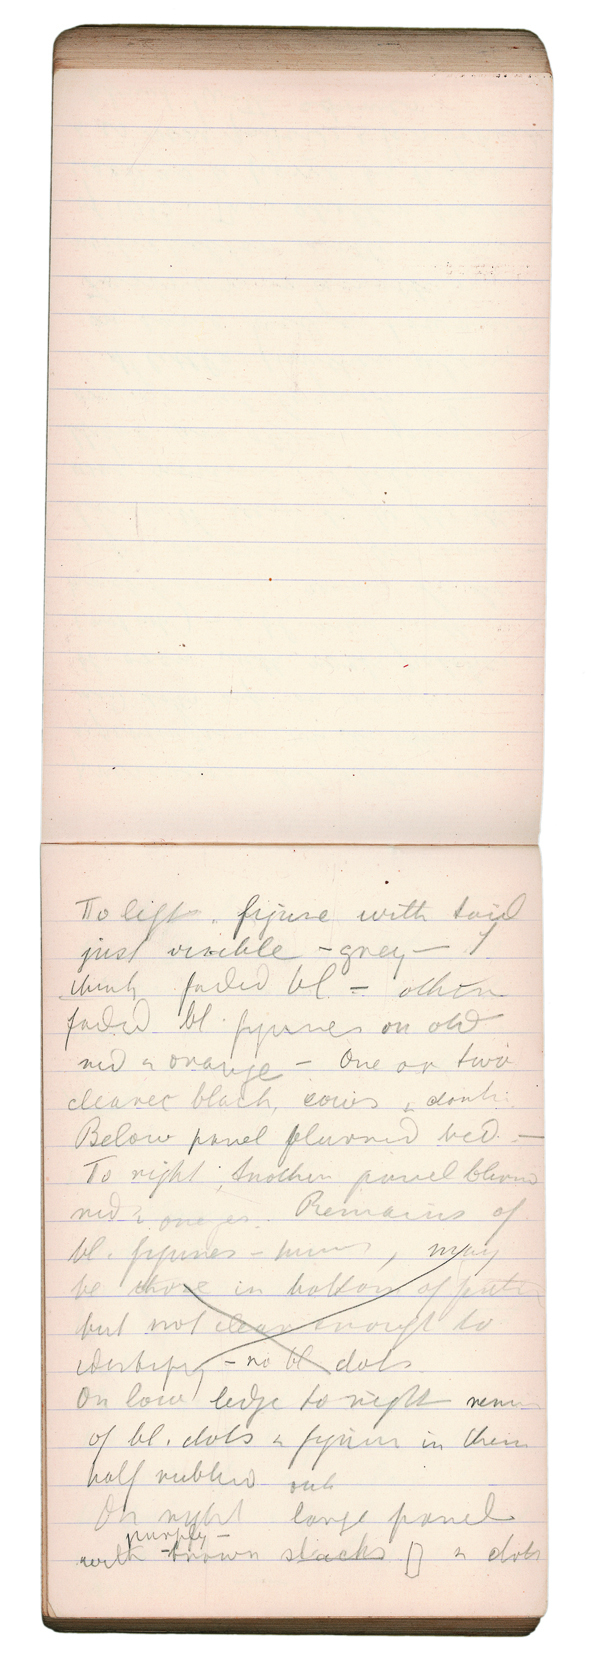 To left. figure with tail
just visible – grey – I
think faded bl – other
faded bl. figures on old
red & orange – One or two
clearer black, cows &
Below panel blurred red. –
To right; Another panel blurred
red &. Remains of
bl. figures –, may
be those in bottom of
but not clear enough to
identify – no bl dots.
On low ledge to right
of bl. dots & figures in them
half rubbed out
On right large panel
purply –
with brown slacks [] & dots